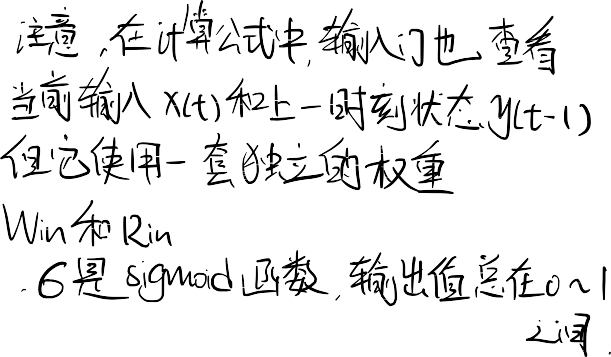 注意,在计算公式中,输入门也查看
当前输入 X(t)和上一时刻状态y(t-1)
但它使用一套独立的权重
Win和Rin
.6是sigmoid函数,输出值总在0~1
之间.